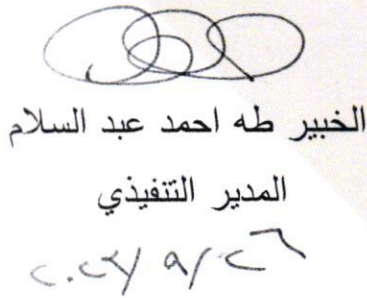 الخبير طه احمد عبد السلام
المدير التنفيذي
٢٠٢٣/٩/٢٦